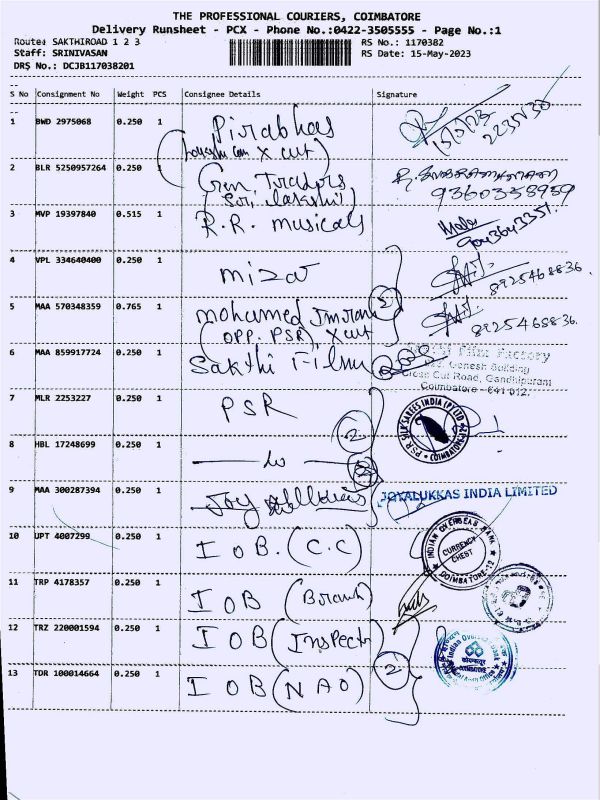 THE PROFESSIONAL COURIERS, COIMBATORE
Delivery Runsheet - PCX - Phone No.:0422-3505555 - Page No.:1
Route: SAKTHIROAD 1 2 3 RS No.: 1170382
Staff: SRINIVASAN RS Date: 15-May-2023
DRS No.: DCJB117038201
S No Consignment No Weight PCS Consignee Details Signature
1 BWD 2975068 0.250 1 Pirabhas
X cut)
2235430
2 BLR 5250957264 0.250 1 Gen. Traders
9360358959
3 MVP 19397840 0.515 1 R.R. musicals
4 VPL 334640400 0.250 1 mizar
8925468836.
5 MAA 570348359 0.765 1 mohamed Imran 2
(OPP. PSR), X cut
8925468836.
6 MAA 859917724 0.250 1 Sakthi Film
Film Factory
Ganesh Building
Cross Cut Road, Gandhipuram
Coimbatore - 641 012.
7 MLR 2253227 0.250 1 PSR
PSR SILK SAREES INDIA (P) LTD
COIMBATORE-12
2
8 HBL 17248699 0.250 1
9 MAA 300287394 0.250 1 JOYALUKKAS INDIA LIMITED
10 UPT 4007299 0.250 1 IOB. (C.C)
INDIAN OVERSEAS BANK
CURRENCY
CHEST
COIMBATORE-12
11 TRP 4178357 0.250 1 IOB (Branch)
12 TRZ 220001594 0.250 1 IOB (Inspectr)
2
Indian Overseas Bank
13 TDR 100014664 0.250 1 IOB (NAO)